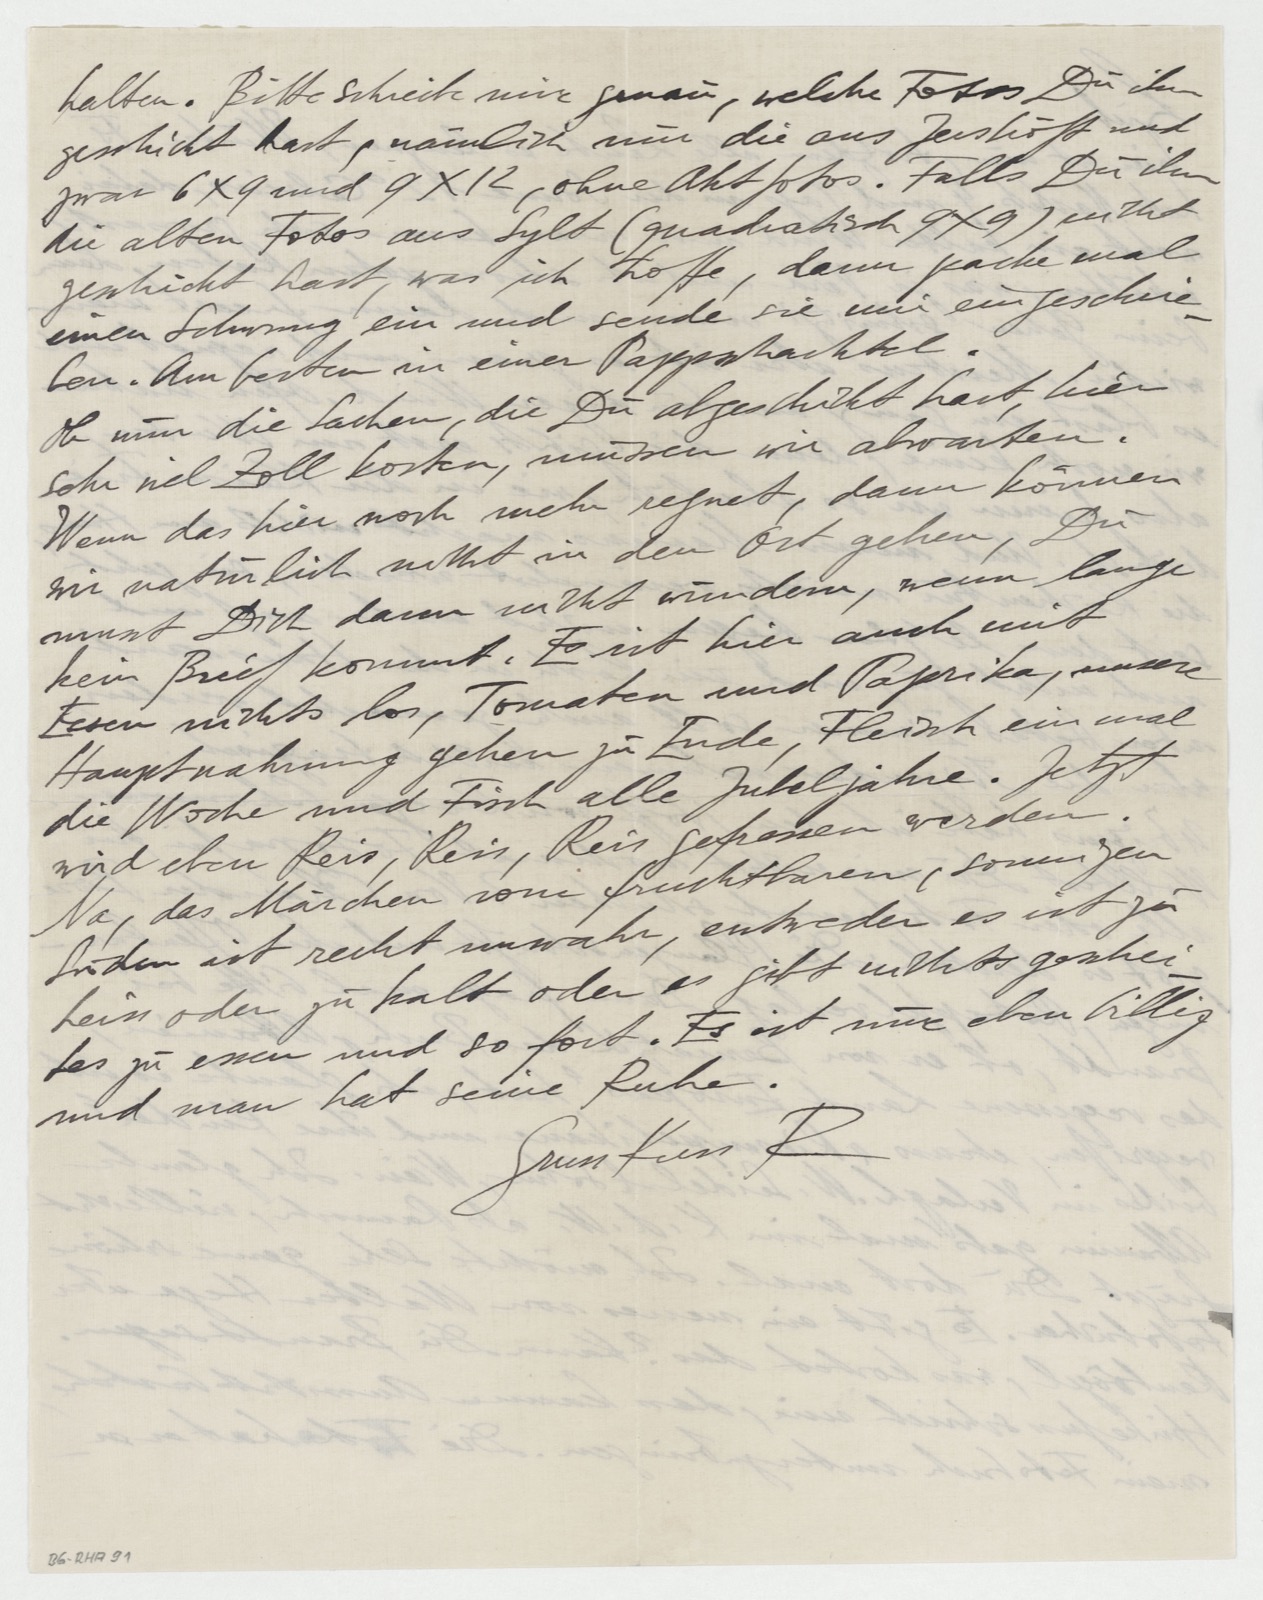 halten. Bitte schreib mir genau, welche Fotos Du ihm
geschickt hast, nämlich nur die aus Jershöft und
zwar 6X9 und 9X12, ohne Aktfotos. Falls Du ihm
die alten Fotos aus Sylt (quadratisch 9X9) nicht
geschickt hast, was ich hoffe, dann packe mal
einen Schwung ein und sende sie mir eingeschrie-
ben. Am besten in einer Pappschachtel.
Ob nun die Sachen, die Du abgeschickt hast, hier
sehr viel Zoll kosten, müssen wir abwarten.
Wenn das hier noch mehr regnet, dann können
wir natürlich nicht in den Ort gehen, Du
musst Dich dann nicht wundern, wenn lange
kein Brief kommt. Es ist hier auch mit
Essen nichts los, Tomaten und Paprika, unsere
Hauptnahrung gehen zu Ende, Fleisch ein mal
die Woche und Fisch alle Jubeljahre. Jetzt
wird eben Reis, Reis, Reis gefressen werden.
Na, das Märchen vom fruchtbaren, sonnigen
Süden ist recht unwahr, entweder es ist zu
heiss oder zu kalt oder es gibt nichts geschei
tes zu essen und so fort. Es ist nur eben billig
und man hat seine Ruhe.
Gruss Kuss R
BG-RHA 91